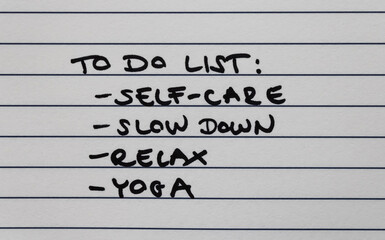 TO DO LIST:
-SELF-CARE
-SLOW DOWN
-RELAX
-YOGA